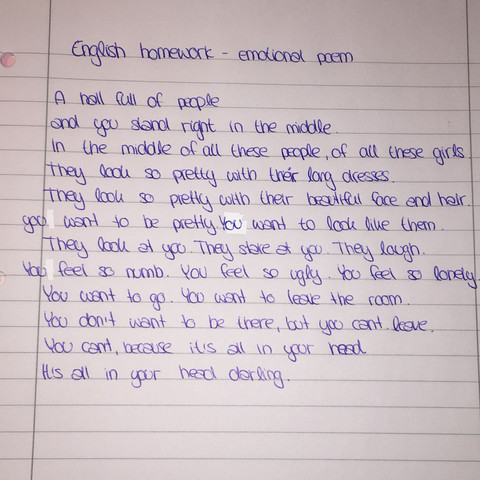 English homework - emotional poem
A hall full of people
and you stand right in the middle.
In the middle of all these people, of all these girls.
They look so pretty with their long dresses.
They look so pretty with their beautiful face and hair.
you want to be pretty. You want to look like them.
They look at you. They stare at you. They laugh.
You feel so numb. You feel so ugly. You feel so lonely.
You want to go. You want to leave the room.
You don't want to be there, but you cant leave.
You cant, because it is all in your head
It is all in your head darling.